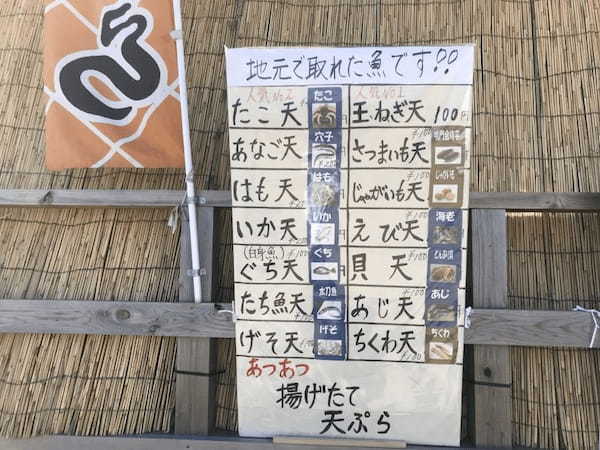 地元で取れた魚です!!
人気No.2
たこ天
たこ
あなご天
穴子
はも天
はも
いか天
いか
(白身魚)
ぐち天
ぐち
たち魚天
太刀魚
げそ天
げそ
人気No1
玉ねぎ天 100円
さつまいも天
¥100
じゃがいも天
¥100
じゃがいも
えび天
¥100
海老
貝天
¥100
あじ天
¥100
あじ
ちくわ天
¥100
ちくわ
あつあつ
揚げたて
天ぷら